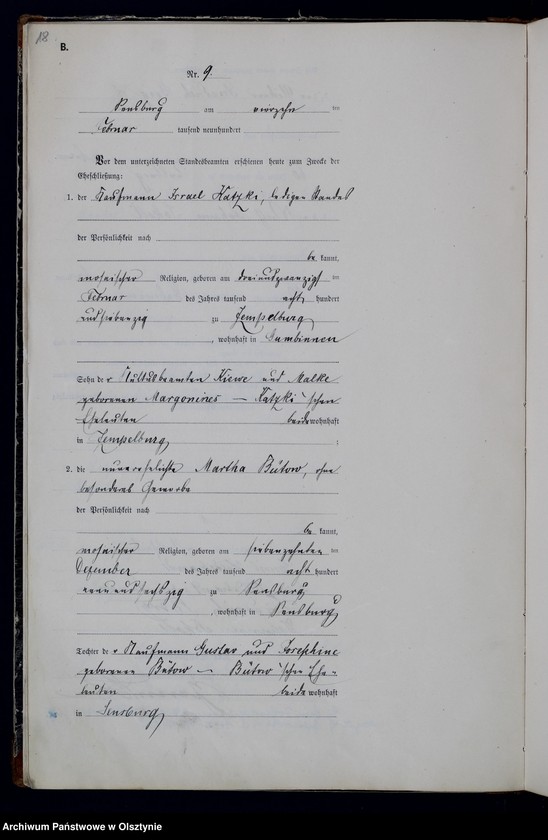 18
B.
Nr. 9.
Sensburg am vierzehn ten
Februar tausend neunhundert
Vor dem unterzeichneten Standesbeamten erschienen heute zum Zwecke der
Eheschließung:
1. der Kaufmann Israel Katzki, ledigen Standes
der Persönlichkeit nach
be kannt,
mosaischer Religion, geboren am dreiundzwanzigsten
Februar des Jahres tausend acht hundert
undsiebenzig zu Zempelburg
, wohnhaft in Gumbinnen
Sohn der Kultusbeamten Kiewe und Malke
geborenen Margonines – Katzki'schen
Eheleuten beide wohnhaft
in Zempelburg
2. die unverehelichte Martha Bütow, ohne
besonderes Gewerbe
der Persönlichkeit nach
be kannt,
mosaischer Religion, geboren am siebenzehnten
Dezember des Jahres tausend acht hundert
undsechszig zu Sensburg
, wohnhaft in Sensburg
Tochter der Kaufmann Gustav und Josephine
geborenen Bütow – Bütow'schen Ehe-
leuten beide wohnhaft
in Sensburg
Archiwum Państwowe w Olsztynie